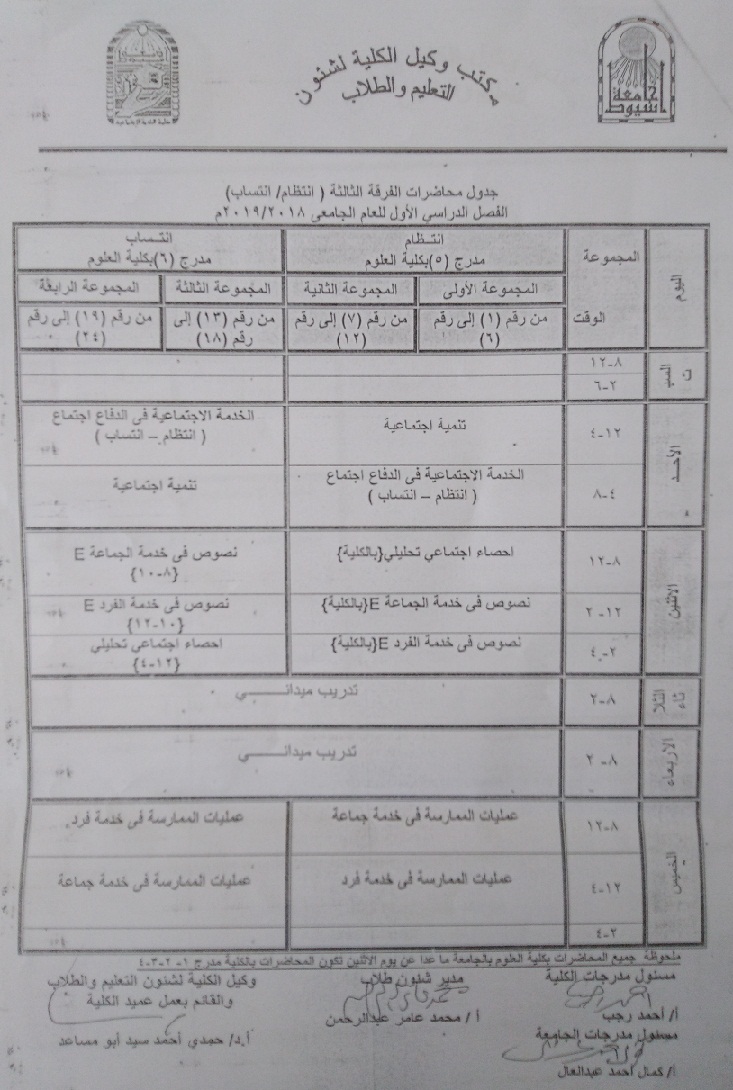 مكتب وكيل الكلية لشئون
التعليم والطلاب
جامعة أسيوط
جدول محاضرات الفرقة الثالثة ( انتظام/ انتساب)
الفصل الدراسي الأول للعام الجامعى ٢٠١٩/٢٠١٨م
اليوم
المجموعة
الوقت
انتظام
مدرج (٥)بكلية العلوم
انتساب
مدرج (٦)بكلية العلوم
المجموعة الأولى
المجموعة الثانية
المجموعة الثالثة
المجموعة الرابعة
من رقم (١) إلى رقم
(٦)
من رقم (٧) إلى رقم
(١٢)
من رقم (١٣) إلى
رقم (١٨)
من رقم (١٩) إلى رقم
(٢٤)
السب
ت
٨-١٢
٢-٦
الأحد
١٢-٤
تنمية اجتماعية
الخدمة الاجتماعية فى الدفاع اجتماع
( انتظام – انتساب )
٤-٨
الخدمة الاجتماعية فى الدفاع اجتماع
( انتظام – انتساب )
تنمية اجتماعية
الاثنين
٨-١٢
احصاء اجتماعي تحليلي{بالكلية}
نصوص فى خدمة الجماعة E
{٨-١٠}
١٢-٢
نصوص فى خدمة الجماعة E{بالكلية}
نصوص فى خدمة الفرد E
{١٠-١٢}
٢-٤
نصوص فى خدمة الفرد E{بالكلية}
احصاء اجتماعي تحليلي
{١٢-٤}
الثلا
ثاء
٨-٢
تدريب ميدانــــــــي
الاربعاء
٨-٢
تدريب ميدانــــــــي
الخميس
٨-١٢
عمليات الممارسة فى خدمة جماعة
عمليات الممارسة فى خدمة فرد
١٢-٤
عمليات الممارسة فى خدمة فرد
عمليات الممارسة فى خدمة جماعة
٢-٤
ملحوظة جميع المحاضرات بكلية العلوم بالجامعة ما عدا عن يوم الاثنين تكون المحاضرات بالكلية مدرج ١-٢-٣-٤
مسئول مدرجات الكلية
أ/ أحمد رجب
مسئول مدرجات الجامعة
أ/ كمال أحمد عبدالعال
مدير شئون طلاب
أ / محمد عامر عبدالرحمن
وكيل الكلية لشئون التعليم والطلاب
والقائم بعمل عميد الكلية
أ.د/ حمدي أحمد سيد أبو مساعد